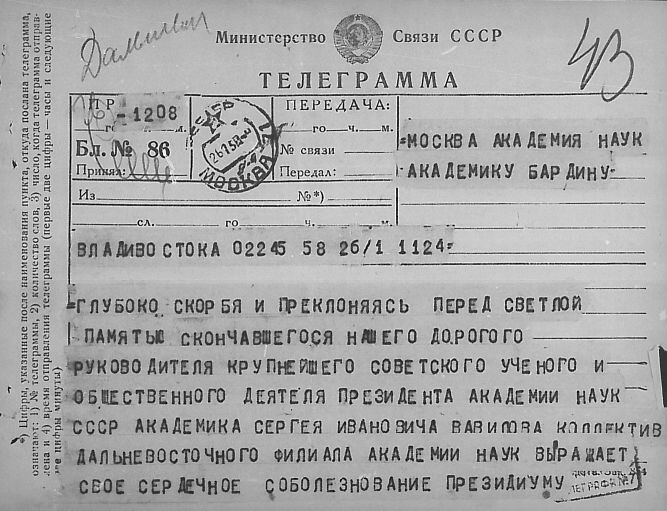 Министерство Связи СССР
43
ТЕЛЕГРАММА
ПР
-1208
го ч. м.
Бл. № 86
Принял:
МОСКВА
26 1 51
ПЕРЕДАЧА:
го ч. м.
№ связи
Передал:
=МОСКВА АКАДЕМИЯ НАУК
АКАДЕМИКУ БАРДИНУ
Из №*)
сл. го ч. м.
ВЛАДИВОСТОКА 02245 58 26/1 1124=
=ГЛУБОКО СКОРБЯ И ПРЕКЛОНЯЯСЬ ПЕРЕД СВЕТЛОЙ
ПАМЯТЬЮ СКОНЧАВШЕГОСЯ НАШЕГО ДОРОГОГО
РУКОВОДИТЕЛЯ КРУПНЕЙШЕГО СОВЕТСКОГО УЧЕНОГО И
ОБЩЕСТВЕННОГО ДЕЯТЕЛЯ ПРЕЗИДЕНТА АКАДЕМИИ НАУК
СССР АКАДЕМИКА СЕРГЕЯ ИВАНОВИЧА ВАВИЛОВА КОЛЛЕКТИВ
ДАЛЬНЕВОСТОЧНОГО ФИЛИАЛА АКАДЕМИИ НАУК ВЫРАЖАЕТ
СВОЕ СЕРДЕЧНОЕ СОБОЛЕЗНОВАНИЕ ПРЕЗИДИУМУ
*) Цифры, указанные после наименования пункта, откуда послана телеграмма,
означают: 1) № телеграммы, 2) количество слов, 3) число, когда телеграмма отправ-
лена и 4) время отправления телеграммы (первые две цифры — часы и следующие
две цифры минуты)